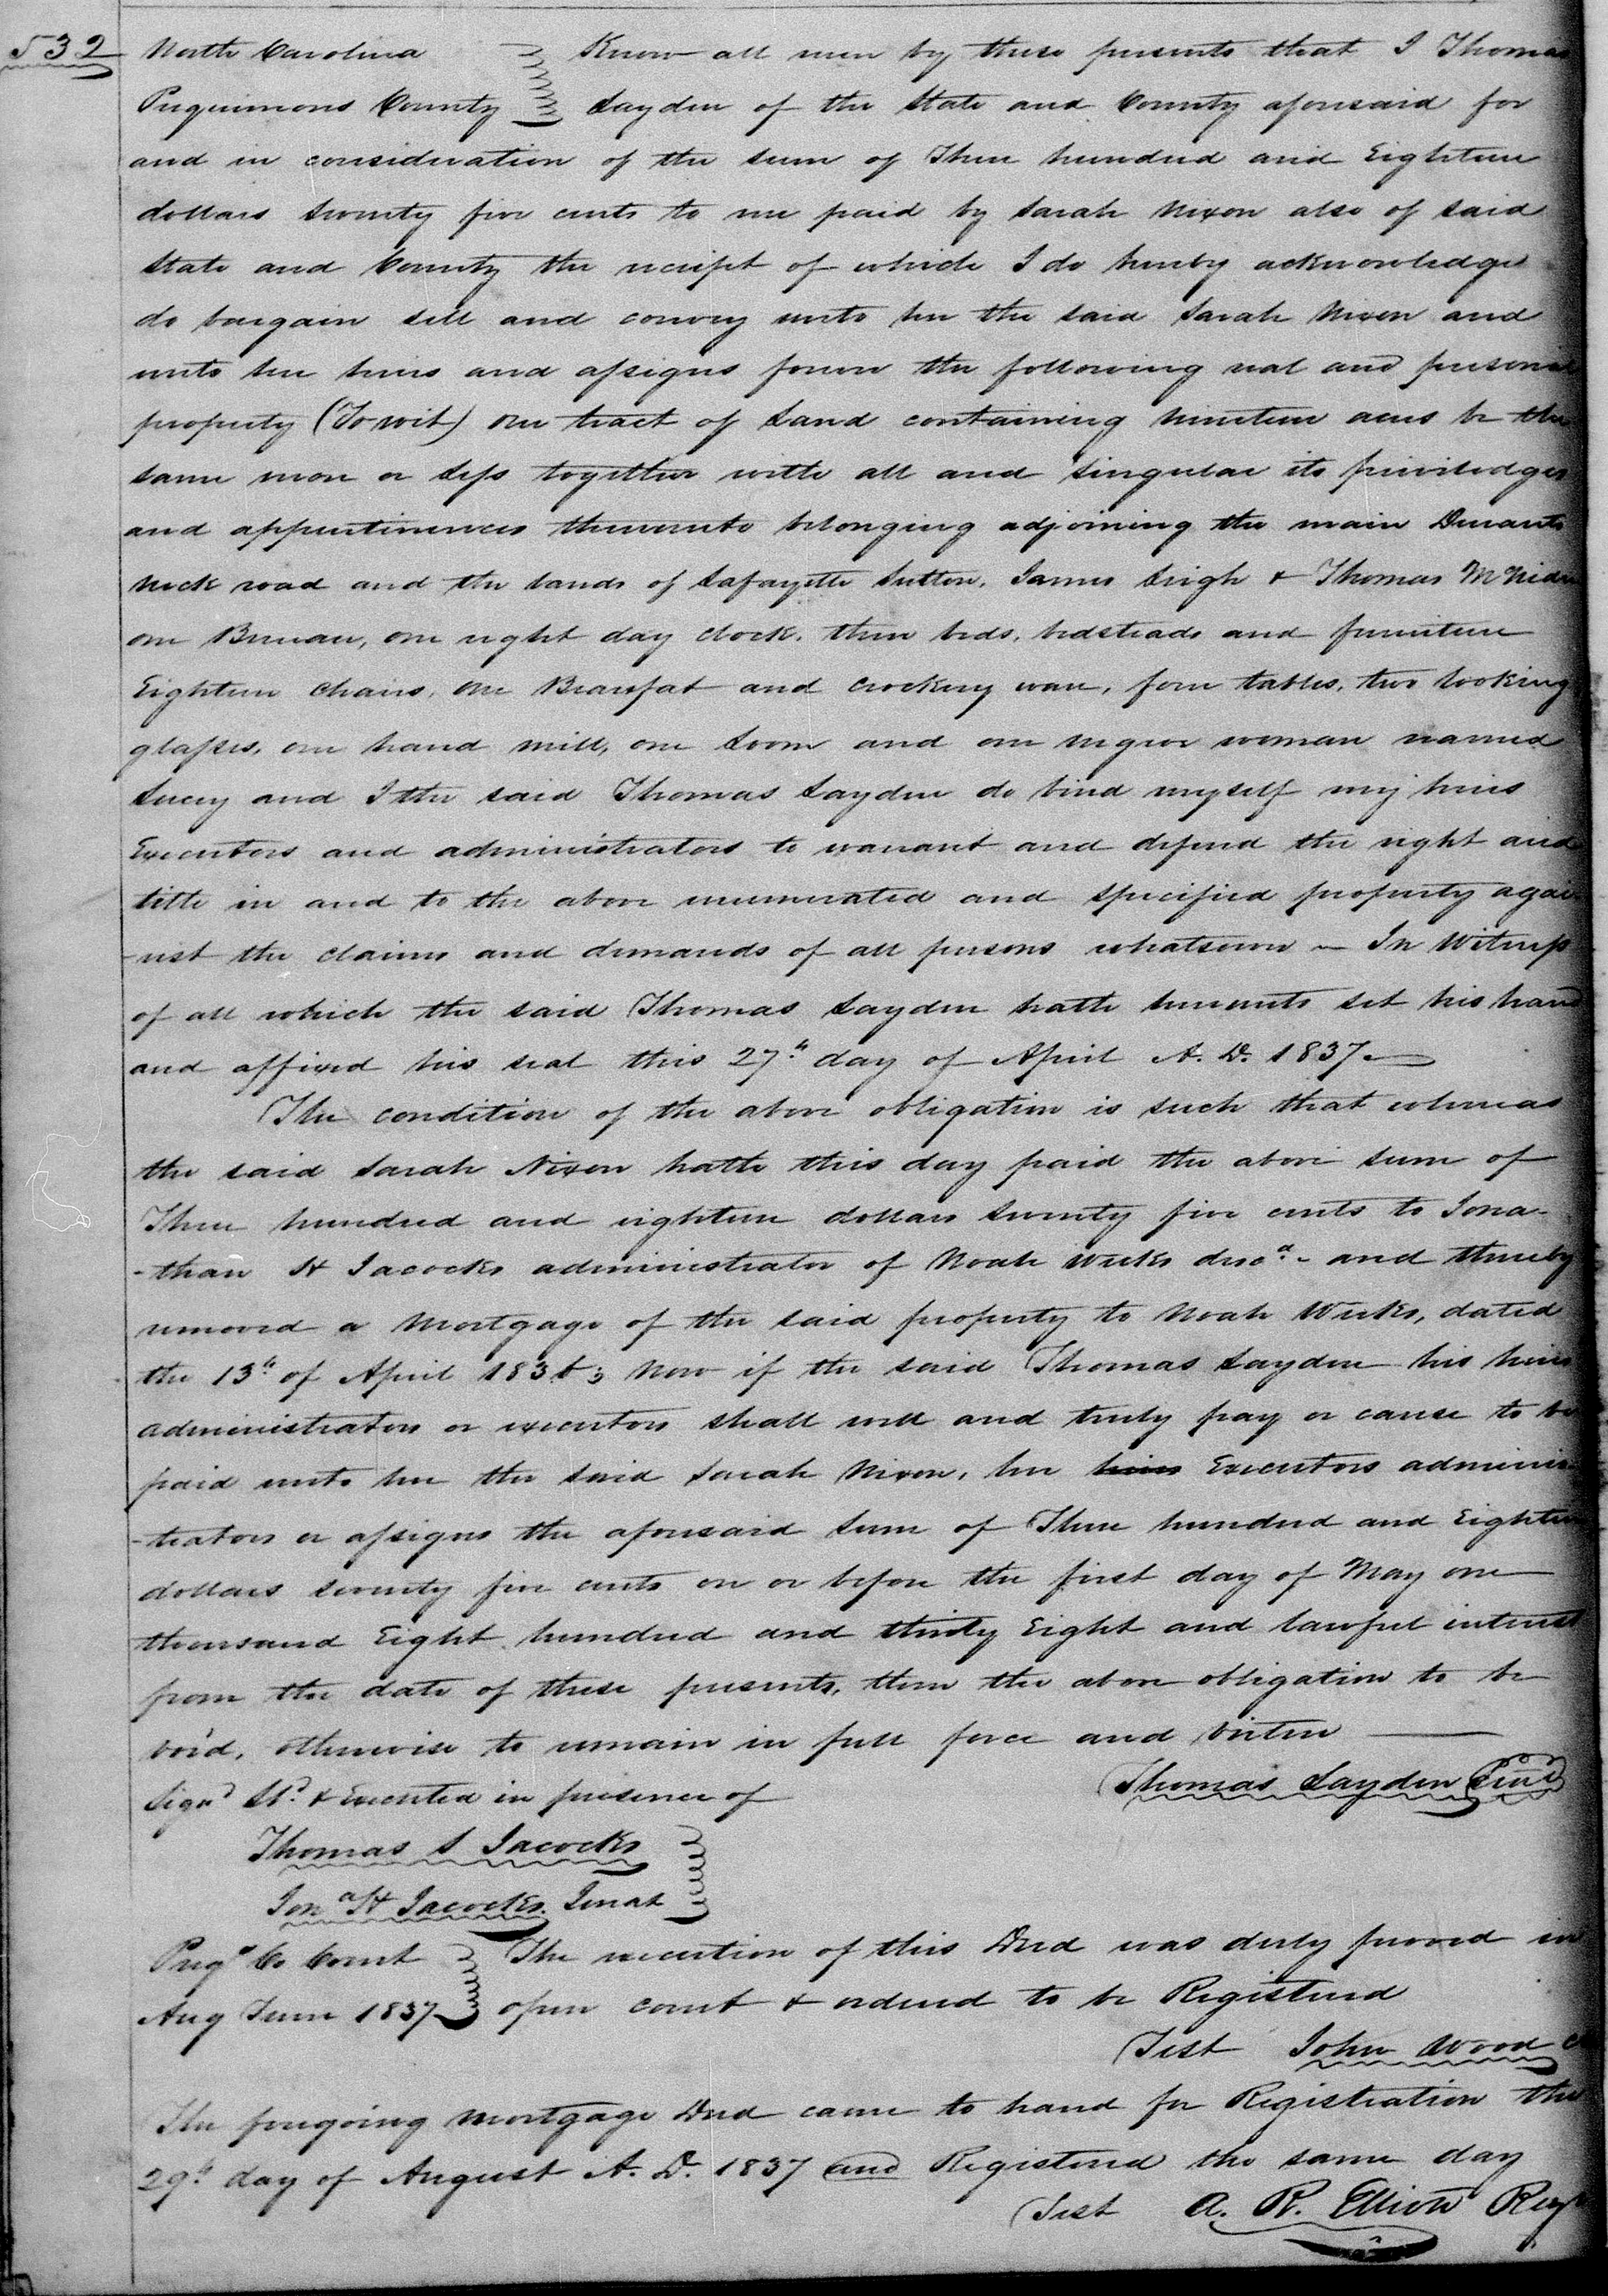 532 North Carolina Know all men by these presents that I Thomas
Perquimons County Layden of the State and County aforesaid for
and in consideration of the sum of Three hundred and Eighteen
dollars seventy five cents to me paid by Sarah Nixon also of said
State and County the receipt of which I do hereby acknowledge
do bargain sell and convey unto her the said Sarah Nixon and
unto her heirs and assigns forever the following real and personal
property (To wit) one tract of Land containing nineteen acres be the
same more or less together with all and singular its priviledges
and appurtinences thereunto belonging adjoining the main Durants
neck road and the lands of Lafayette Sutton, James Leigh & Thomas McNider
one Bureau, one eight day clock, three beds, bedsteads and furniture
Eighteen chairs, one Beaufat and crockery ware, four tables, two looking
glasses, one hand mill, one Loom and one negroe woman named
Lucey and I the said Thomas Layden do bind myself my heirs
Executors and administrators to warrant and defend the right and
title in and to the above enumerated and specified property agai-
-nst the claims and demands of all persons whatsoever — In Witness
of all which the said Thomas Layden hath hereunto set his hand
and affixed his seal this 27th day of April A. D. 1837 —
The condition of the above obligation is such that whereas
the said Sarah Nixon hath this day paid the above sum of
Three hundred and eighteen dollars seventy five cents to Jona-
-than H Jacocks administrator of Noah Weeks decd. - and thereby
removed a Mortgage of the said property to Noah Weeks, dated
the 13th of April 1836; Now if the said Thomas Layden his heirs
administrators or executors shall well and truly pay or cause to be
paid unto her the said Sarah Nixon, her heirs Executors adminis-
-trators or assigns the aforesaid sum of Three hundred and Eighteen
dollars seventy five cents on or before the first day of May one
thousand Eight hundred and thirty Eight and lawful interest
from the date of these presents, then the above obligation to be
void, otherwise to remain in full force and virtue —
Thomas Layden Seal
Signd Sld. & Executed in presence of
Thomas S Jacocks
Jona H Jacocks Jurat
Perqs Co Court The execution of this Deed was duly proved in
Aug Term 1837 open court & ordered to be Registered
Test John Wood
The foregoing mortgage Deed came to hand for Registration the
29th day of August A. D. 1837 and Registered the same day
Test A. R. Elliott Regr